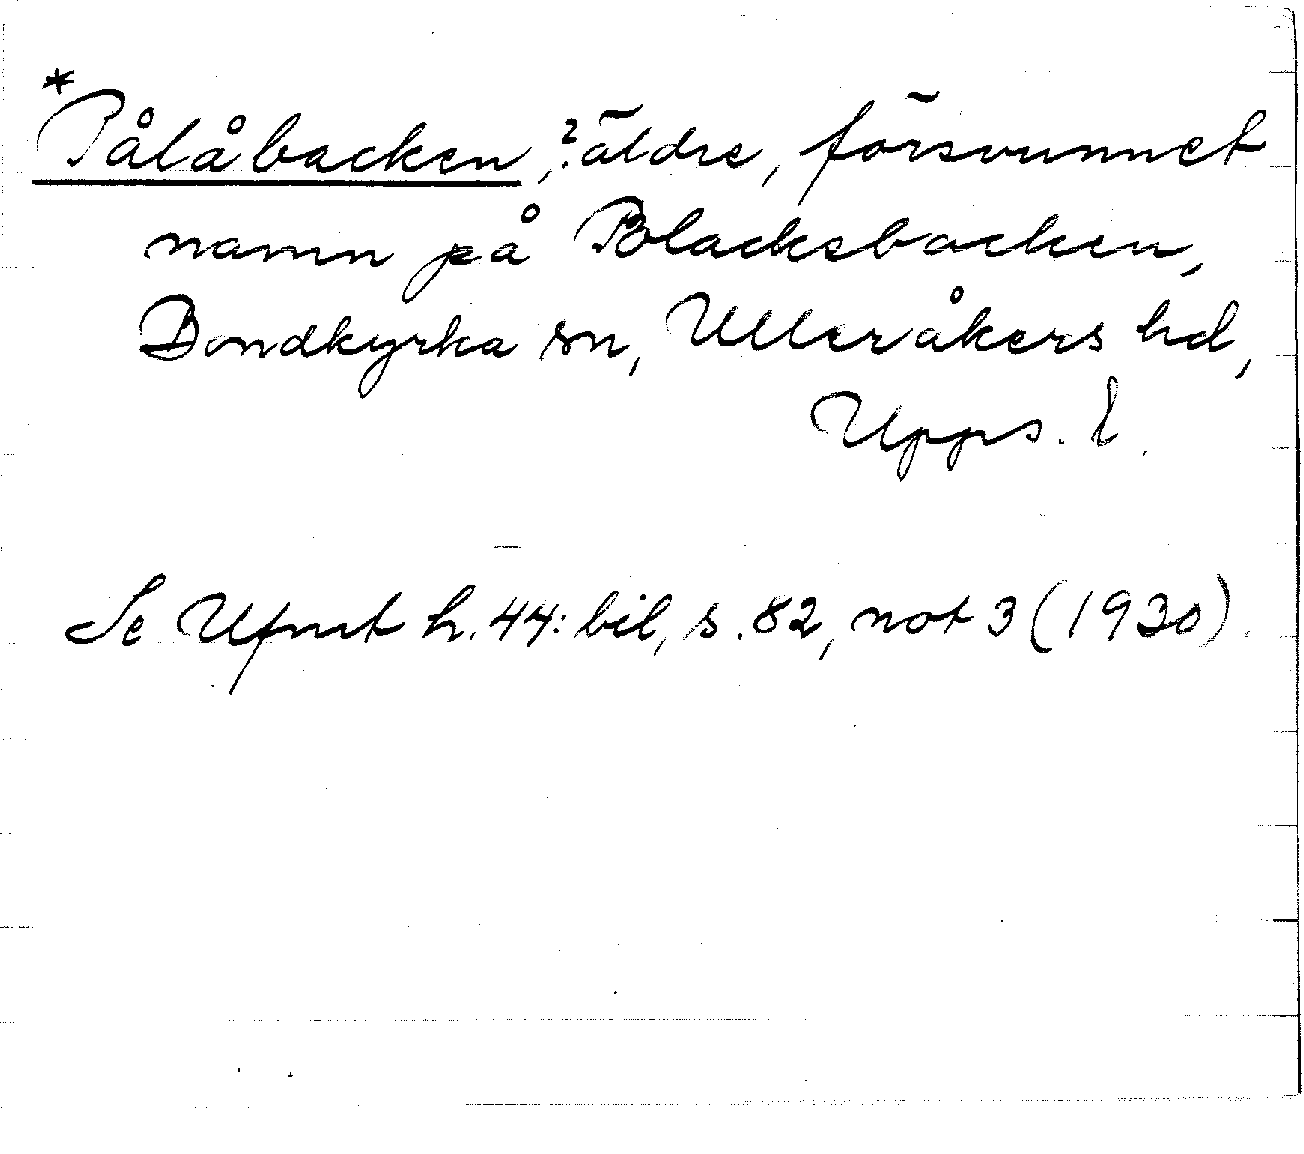 *Pålåbacken, ?äldre, försvunnet
namn på Blacksbacken,
Bondkyrka sn, Ulleråkers hd,
Upps. l.
Se Ufmt h. 44: bil, s. 82, not 3 (1930).